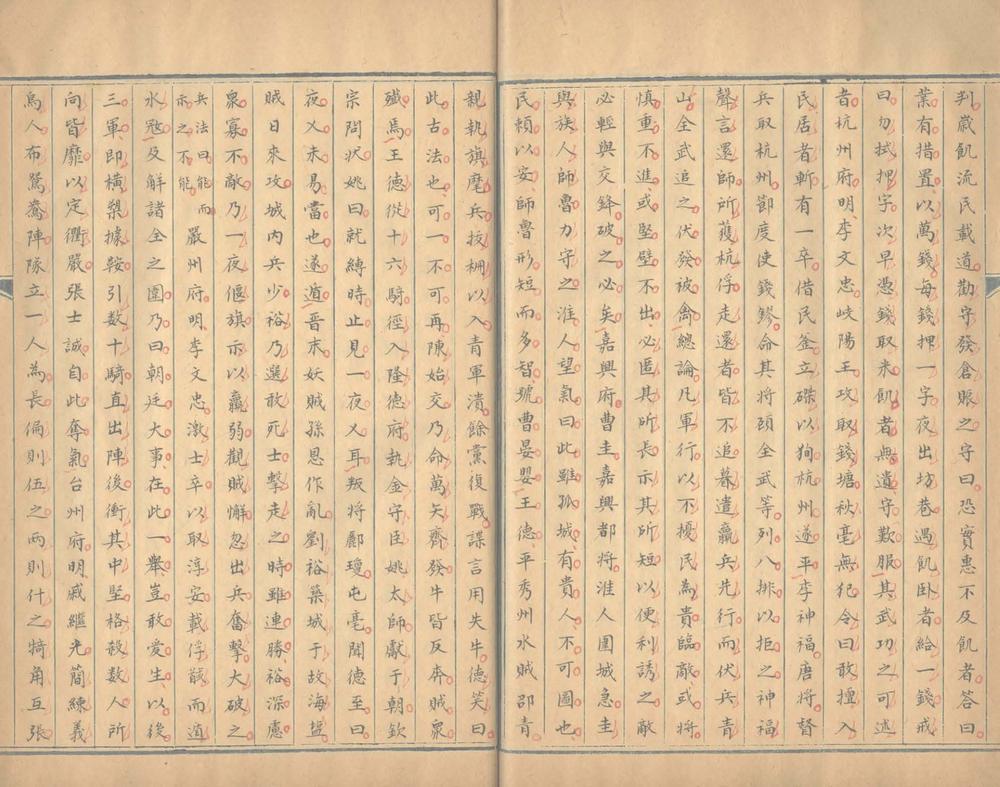 判歲飢流民載道勸守發倉賑之守曰恐實惠不及飢者答曰
業有措置以萬錢每錢押一字夜出坊巷遇飢臥者給一錢戒
曰勿拭押字次早憑錢取米飢者無遺守歎服其武功之可述
者杭州府明李文忠岐陽王攻取錢塘秋毫無犯令曰敢擅入
民居者斬有一卒借民釜立磔以狥杭州遂平李神福唐將督
兵取杭州節度使錢鏐命其將顧全武等列八排以拒之神福
聲言還師所獲杭俘走還者皆不追暮遣羸兵先行而伏兵青
山全武追之伏發被禽總論凡軍行以不擾民為貴臨敵或將
慎重不進或堅壁不出必匿其所長示其所短以便利誘之敵
必輕與交鋒破之必矣嘉興府曹圭嘉興都將淮人圍城急圭
與族人師魯力守之淮人望氣曰此雖孤城有貴人不可圖也
民賴以安師魯形短而多智號曹晏嬰王德平秀州水賊邵青
親執旗麾兵拔柵以入青軍潰餘黨復戰諜言用失牛德笑曰
此古法也可一不可再陳始交乃命萬矢齊發牛皆反奔賊衆
殲焉王德從十六騎徑入隆德府執金守臣姚太師獻于朝欽
宗問狀姚曰就縛時止見一夜乂耳叛將酈瓊屯亳聞德至曰
夜乂未易當也遂遁晉末妖賊孫恩作亂劉裕築城于故海塩
賊日來攻城内兵少裕乃選敢死士擊走之時雖連勝裕深慮
衆寡不敵乃一夜偃旗示以羸弱觀賊懈忽出兵奮擊大破之
兵法曰能而示之不能嚴州府明李文忠激士卒以取淳安載俘馘而遁
水寇及解諸全之圍乃曰朝廷大事在此一舉豈敢愛生以後
三軍即橫槊據鞍引数十騎直出陣後衝其中堅格殺数人所
向皆靡以定衢嚴張士誠自此奪氣台州府明戚繼光蕳練義
烏人布鴛鴦陣隊立一人為長偏則伍之兩則什之犄角互張